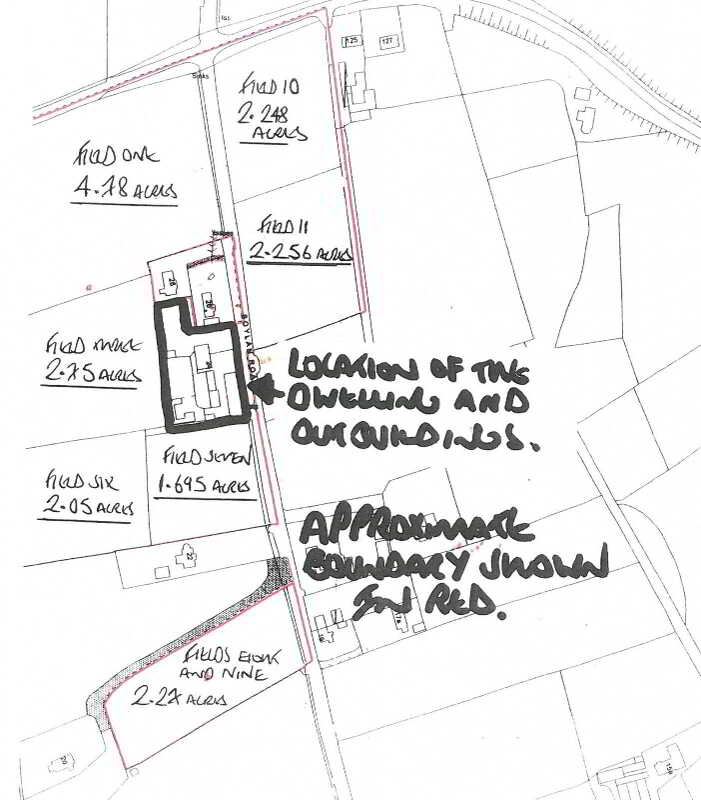 125
127
FIELD 10
2.248
ACRES
FIELD ONE
4.78 ACRES
FIELD 11
2.256 ACRES
28
BOYLAN ROAD
FIELD THREE
2.75 ACRES
LOCATION OF THE
DWELLING AND
OUTBUILDINGS.
FIELD SIX
2.05 ACRES
FIELD SEVEN
1.695 ACRES
22
APPROXIMATE
BOUNDARY SHOWN
IN RED.
FIELDS EIGHT
AND NINE
2.27 ACRES